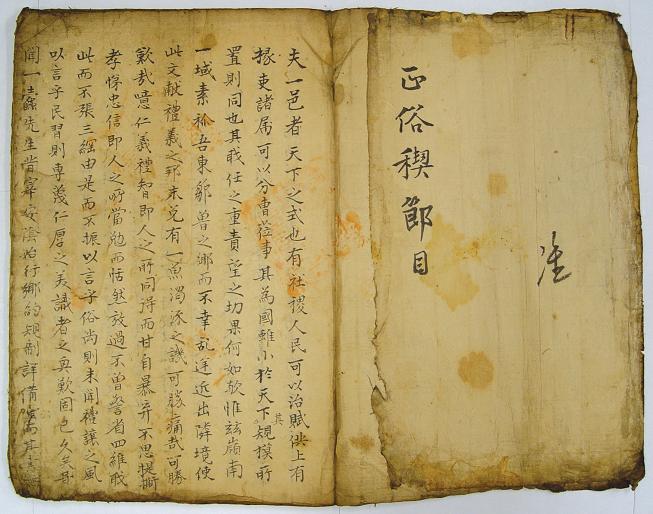 正俗稧節目
準
夫一邑者天下之式也有社稷人民可以治賦供上有
掾吏諸属可以分曹莅事其為國雖小於天下其規模所
置則同也其戝任之重責望之切果何如欤惟玆嶺南
一域素称吾東鄒魯之鄕而不幸乱逆近出隣境使
此文献禮義之邦未免有一魚濁泺之譏可勝痛㢤可勝
歎㢤噫仁義禮智即人之所同得而甘自暴弃不思提撕
孝悌忠信即人之所當勉而恬然放過不曽警省四維戝
此而不張三綱由是而不振以言乎俗尚則未聞禮讓之風
以言乎民習則専蔑仁厚之美識者之輿歎固已久矣
聞一蠹先生昔宰安陰始行鄕約規制詳備